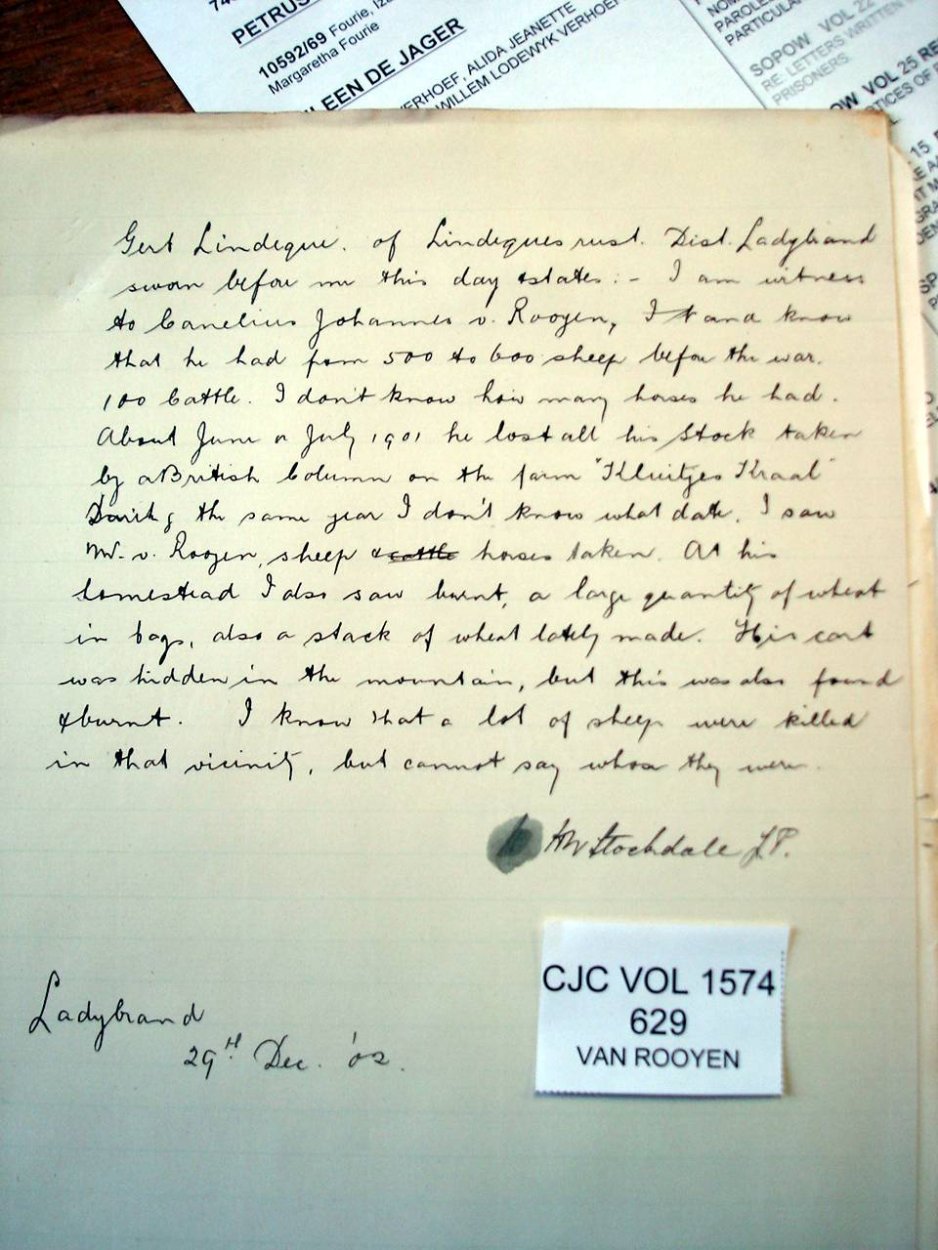 PETRUS
10592/69 Fourie, Iza
Margaretha Fourie
LEEN DE JAGER
VERHOEF, ALIDA JEANETTE
WILLEM LODEWYK VERHOEF
PAROLE
PARTICULAR
SOPOW VOL 22
RE. LETTERS WRITTEN
PRISONERS.
OW VOL 25 RE
TICES OF
Gert Lindeque. of Lindequesrust. Dist. Ladybrand
sworn before me this day states: - I am witness
to Canelius Johannes v. Rooyen, I and know
that he had from 500 to 600 sheep before the war.
100 Cattle. I don't know how many horses he had.
About June or July 1901 he lost all his Stock taken
by a British Column on the farm "Kluitjes Kraal"
During the same year I don't know what date, I saw
Mr. v. Rooyen, sheep & cattle horses taken. At his
homestead I also saw burnt, a large quantity of wheat
in bags, also a stack of wheat lately made. His cart
was hidden in the mountain, but this was also found
& burnt. I know that a lot of sheep were killed
in that vicinity, but cannot say whose they were.
Stockdale J.P.
Ladybrand
29th Dec. '02.
CJC VOL 1574
629
VAN ROOYEN